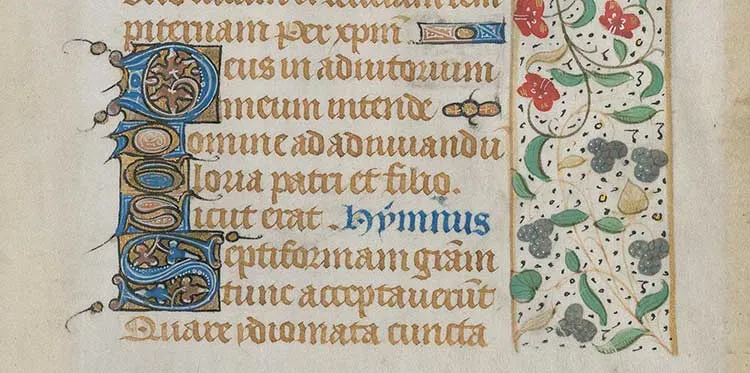 piternam Per xpm̄
Deus in adiutorium
meum intende
Domine ad adiuuandū
Gloria patri et filio.
Sicut erat . Hymnus
Septiformam grām
tunc acceptauerūt
Quare ydiomata cuncta